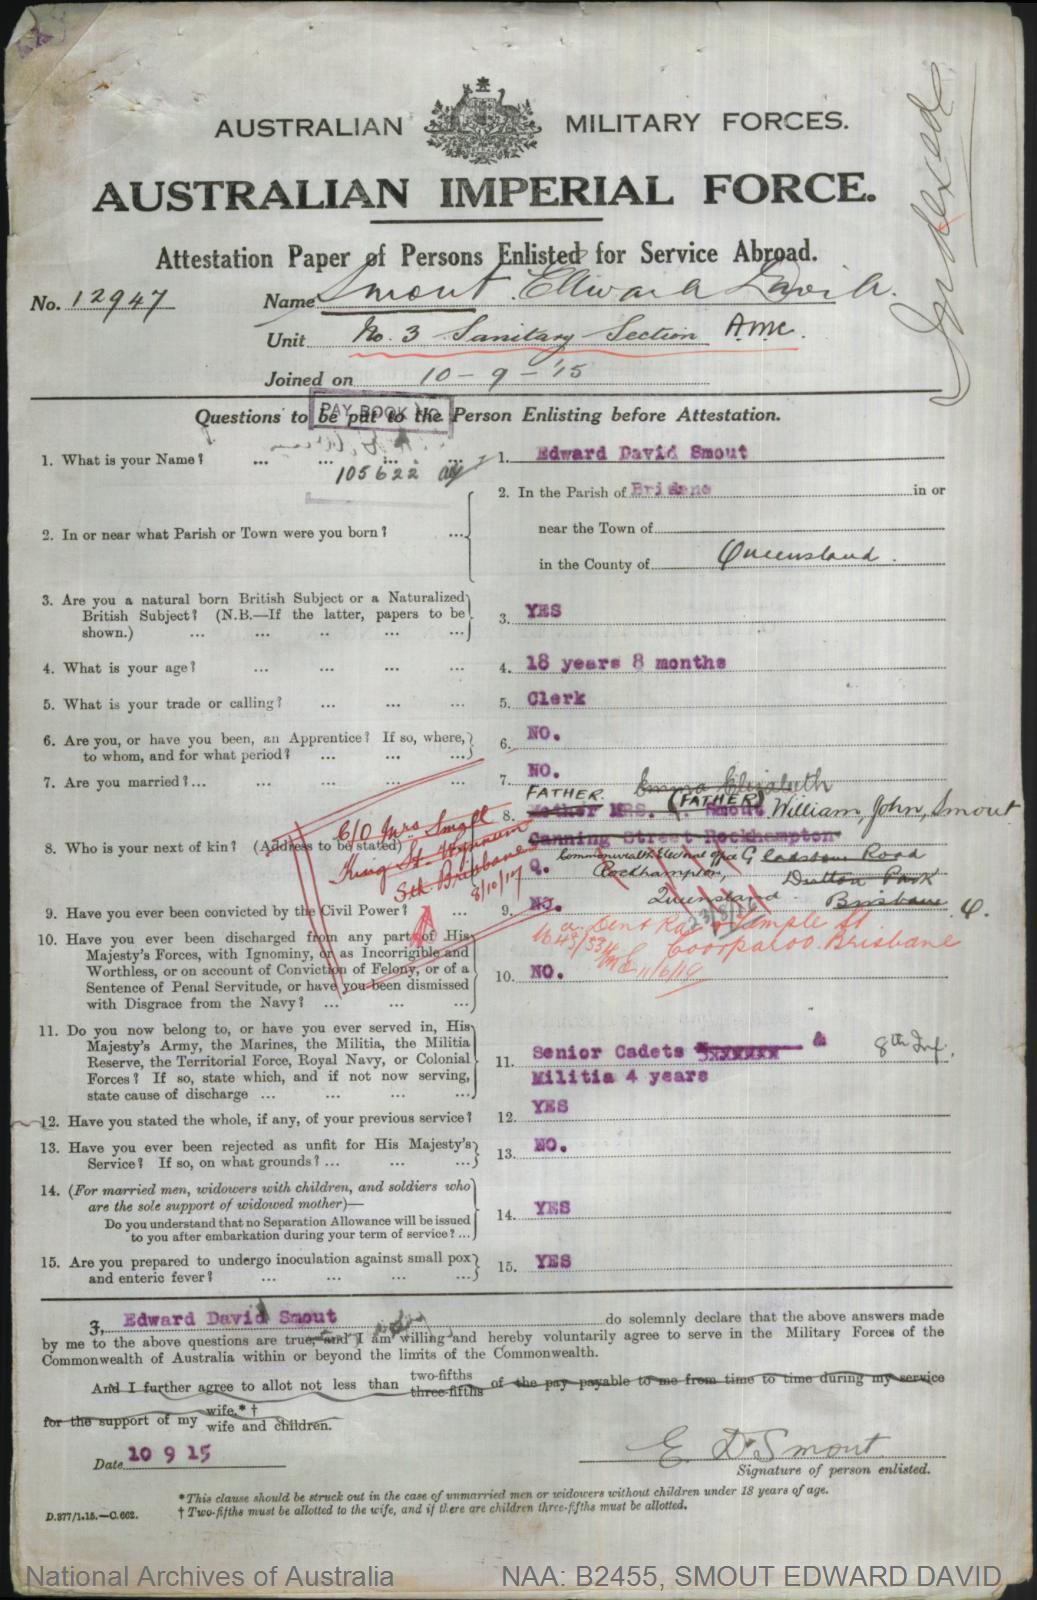 AUSTRALIAN MILITARY FORCES.
AUSTRALIAN IMPERIAL FORCE.
Attestation Paper of Persons Enlisted for Service Abroad.
No. 12947 Name Smout Edward David.
Unit No. 3 Sanitary Section A.M.C.
Joined on 10 - 9 - '15
Indexed
Questions to be put to the Person Enlisting before Attestation.
PAY BOOK NO
105622
1. What is your Name? ... ... ... ... 1. Edward David Smout
2. In or near what Parish or Town were you born? ... 2. In the Parish of Brisbane in or
near the Town of
in the County of Queensland.
3. Are you a natural born British Subject or a Naturalized
British Subject? (N.B.—If the latter, papers to be
shown.) ... ... .. ... ... 3. YES
4. What is your age? ... ... ... ... 4. 18 years 8 months
5. What is your trade or calling? ... ... ... 5. Clerk
6. Are you, or have you been, an Apprentice? If so, where,
to whom, and for what period? ... ... ... 6. NO.
7. Are you married? ... ... ... ... ... 7. NO.
Emma Elizabeth
FATHER.
8. Mother MRS. Smout (FATHER) William, John, Smout
Canning Street Rockhampton
8. Who is your next of kin? (Address to be stated)
Q. Commonwealth Electoral Office Gladstone Road
Rockhampton, Dutton Park
Queensland Brisbane Q.
23/8/16
C/O Mrs Small
King St. Wynnum
Sth Brisbane
8/10/17
9. Have you ever been convicted by the Civil Power? ... 9. NO.
Temple St
Coorparoo. Brisbane
11/6/19
10. Have you ever been discharged from any part of His
Majesty's Forces, with Ignominy, or as Incorrigible and
Worthless, or on account of Conviction of Felony, or of a
Sentence of Penal Servitude, or have you been dismissed
with Disgrace from the Navy? ... ... ... 10. NO.
11. Do you now belong to, or have you ever served in, His
Majesty's Army, the Marines, the Militia, the Militia
Reserve, the Territorial Force, Royal Navy, or Colonial
Forces? If so, state which, and if not now serving,
state cause of discharge ... ... ... ... 11. Senior Cadets & 8th Inf.
Militia 4 years
12. Have you stated the whole, if any, of your previous service? 12. YES
13. Have you ever been rejected as unfit for His Majesty's
Service? If so, on what grounds? ... ... ... 13. NO.
14. (For married men, widowers with children, and soldiers who
are the sole support of widowed mother)—
Do you understand that no Separation Allowance will be issued
to you after embarkation during your term of service? ... 14. YES
15. Are you prepared to undergo inoculation against small pox
and enteric fever? ... ... ... ... 15. YES
I, Edward David Smout do solemnly declare that the above answers made
by me to the above questions are true, and I am willing and hereby voluntarily agree to serve in the Military Forces of the
Commonwealth of Australia within or beyond the limits of the Commonwealth.
And I further agree to allot not less than two-fifths three-fifths of the pay payable to me from time to time during my service
for the support of my wife.* † wife and children.
Date 10 9 15
E. D. Smout
Signature of person enlisted.
*This clause should be struck out in the case of unmarried men or widowers without children under 18 years of age.
† Two-fifths must be allotted to the wife, and if there are children three-fifths must be allotted.
D.377/1.15.—C.662.
National Archives of Australia NAA: B2455, SMOUT EDWARD DAVID